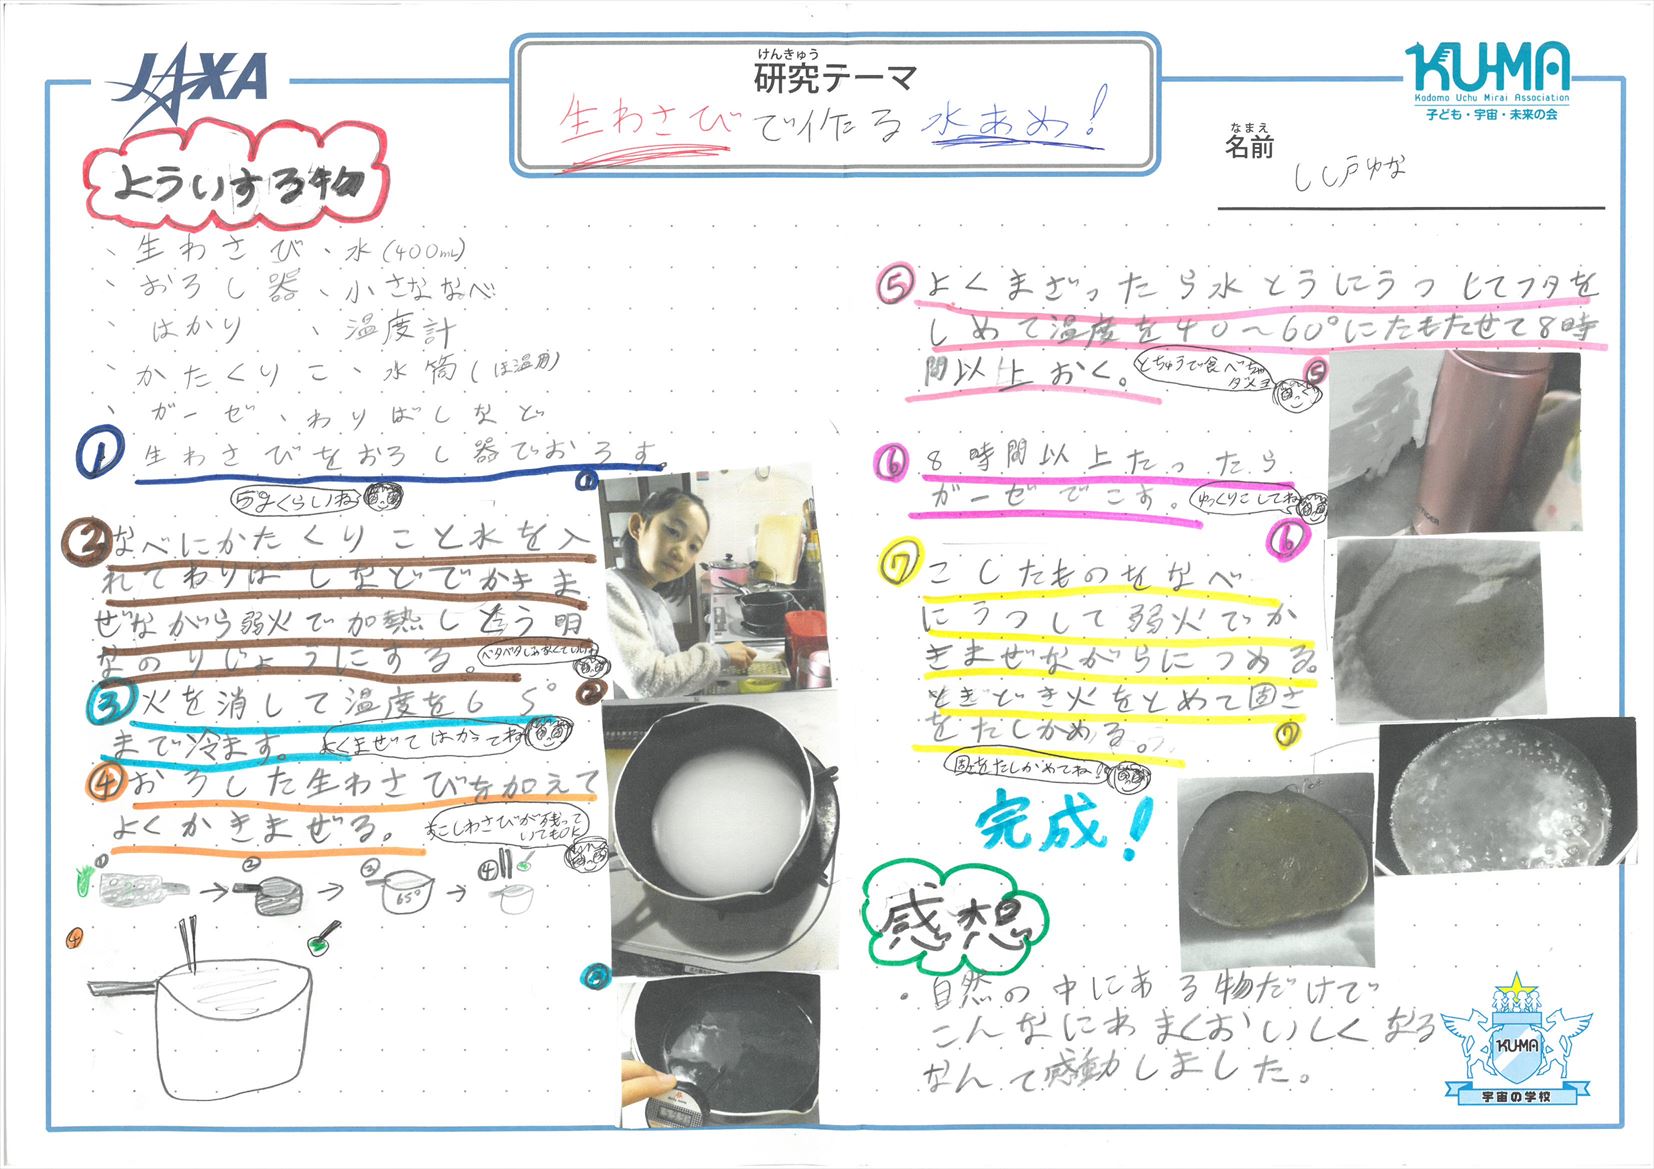 JAXA
けんきゅう
研究テーマ
生わさびで作る水あめ!
KU-MA
Kodomo Uchu Mirai Association
子ども・宇宙・未来の会
なまえ
名前
しし戸ゆな
よういする物
、生わさび、水(400mL)
、おろし器、小さななべ
、はかり、温度計
、かたくりこ、水筒(ほ温用)
、ガーゼ、わりばしなど
① 生わさびをおろし器でおろす。
②なべにかたくりこと水を入
れてわりばしなどでかきま
ぜながら弱火で加熱しとう明
なのりじょうにする。
③火を消して温度を65°
まで冷ます。
よくまぜてはかってね
④おろした生わさびを加えて
よくかきまぜる。
すこしわさびが残って
いてもOK
① ② ③ ④
65°
④
①
②
③
⑤よくまざったら水とうにうつしてフタを
しめて温度を40〜60°にたもたせて8時
間以上おく。
とちゅうで食べちゃ
ダメヨ
⑤
⑥ 8時間以上たったら
ガーゼでこす。
ゆっくりこしてね
⑥
⑦ こしたものをなべ
にうつして弱火でか
きまぜながらにつめる。
ときどき火をとめて固さ
をたしかめる。
⑦
固さをたしかめてね!
完成!
感想
・自然の中にある物だけで
こんなにあまくおいしくなる
なんて感動しました。
KU-MA
宇宙の学校